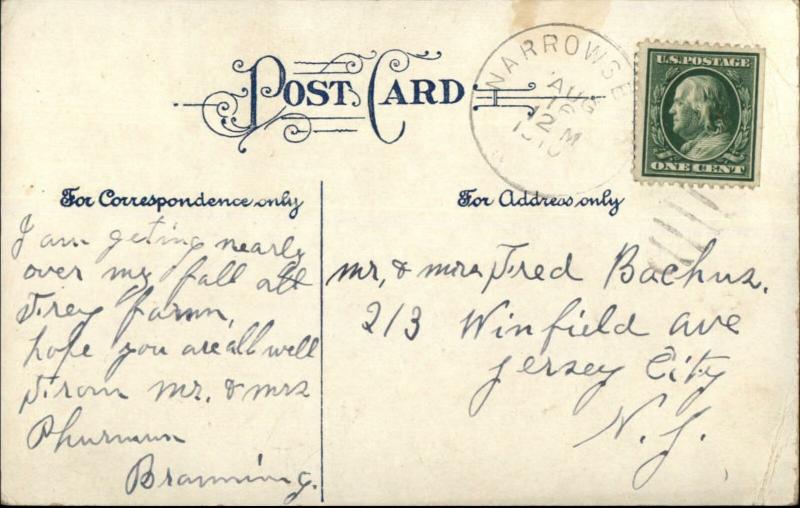 POST CARD
NARROWSB
AUG
16
12 M
1910
U.S. POSTAGE
ONE CENT
For Correspondence only
For Address only
I am geting nearly
over my fall att
Frey farm,
hope you are all well
From Mr. & Mrs
Phurman
Branning.
Mr, & Mrs Fred Bachus.
213 Winfield ave
Jersey City
N. J.